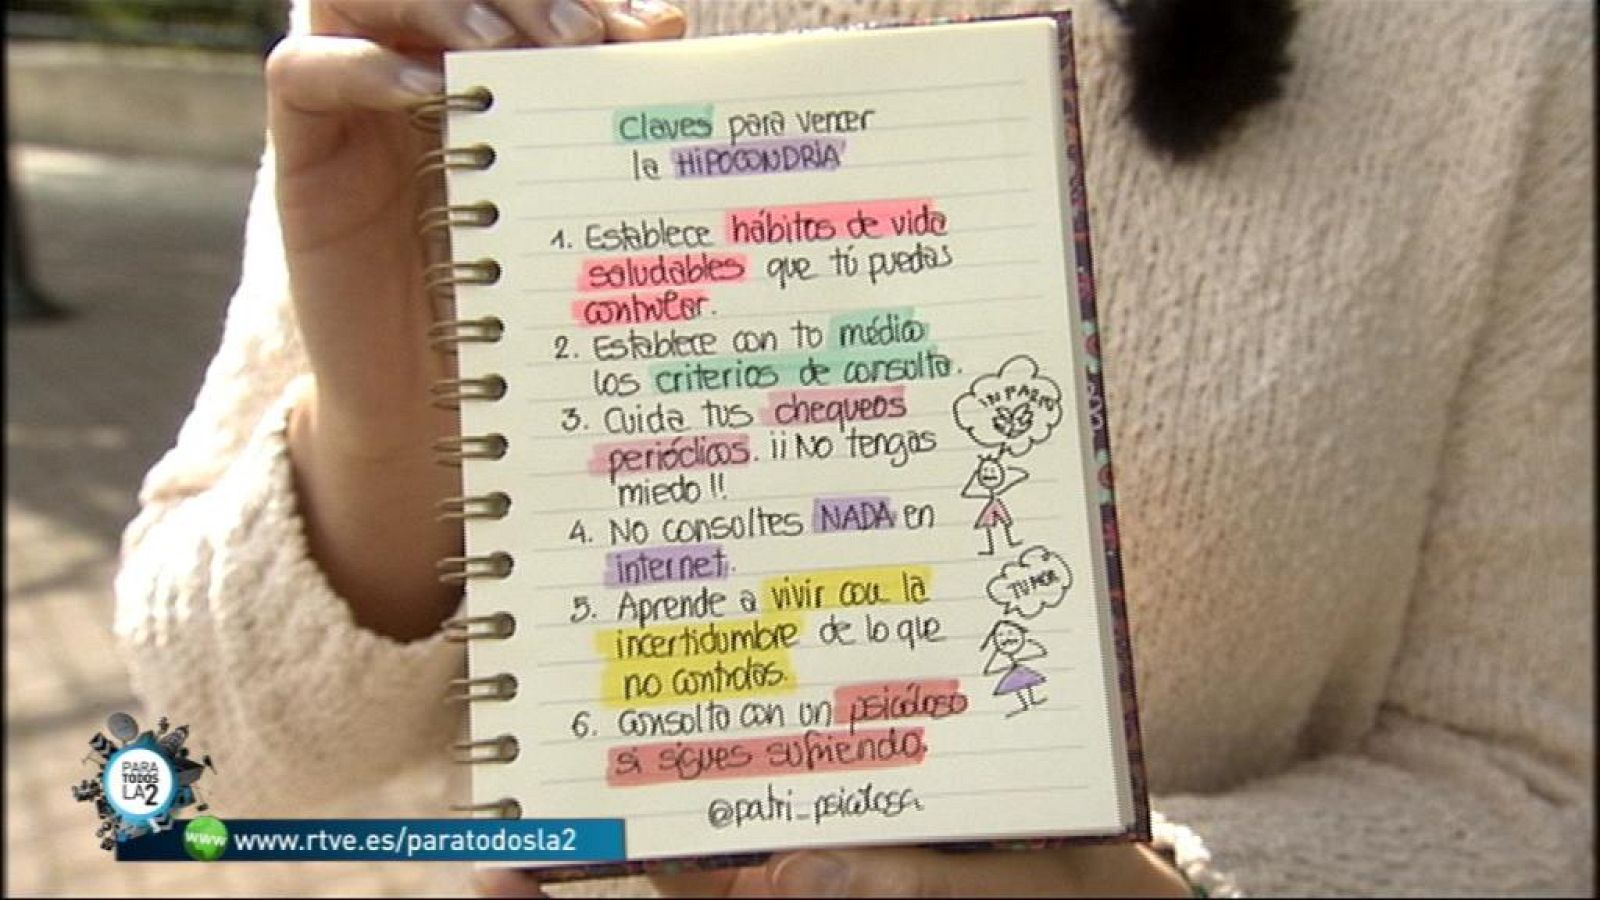 Claves para vencer
la HIPOCONDRÍA
1. Establece hábitos de vida
saludables que tú puedas
controlar.
2. Establece con tu médico
los criterios de consulta.
3. Cuida tus chequeos
periódicos. ¡¡No tengas
miedo!!
4. No consultes NADA en
internet.
5. Aprende a vivir con la
incertidumbre de lo que
no controlas.
6. Consulta con un psicólogo
si sigues sufriendo.
@patri_psicologa
INFARTO
TUMOR
PARA
TODOS
LA2
www
www.rtve.es/paratodosla2